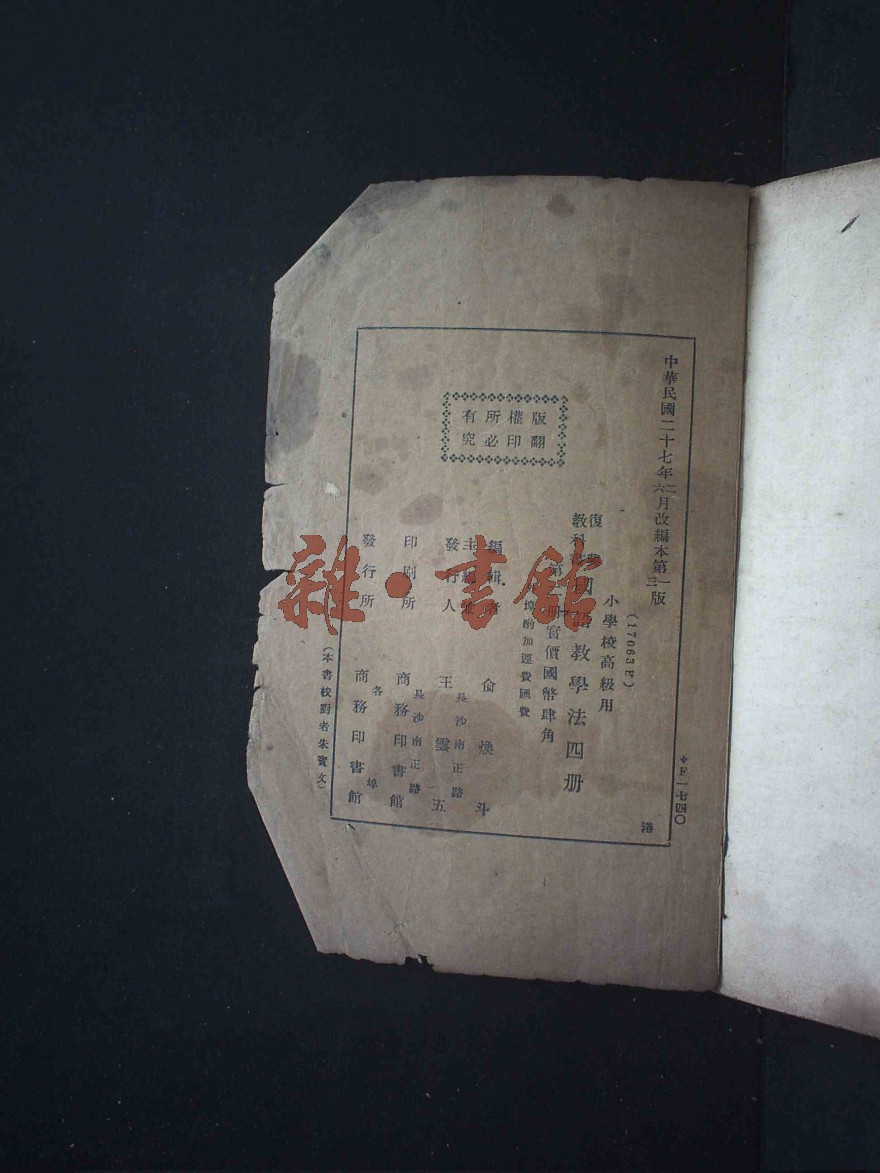 中華民國二十七年二月改編本第一版
六 三
(17063F)
小學校高級用
復興
教科書
國語教學法四册
第 册實價國幣肆角
埠酌加運費匯費
版權所有
翻印必究
編輯者 俞煥斗
主編兼
發行人 王雲五
長沙南正路
印刷所 商務印書館
長沙南正路
發行所 商務印書館
各埠
(本書校對者朱賓文)
一七四〇
港
雜·書館